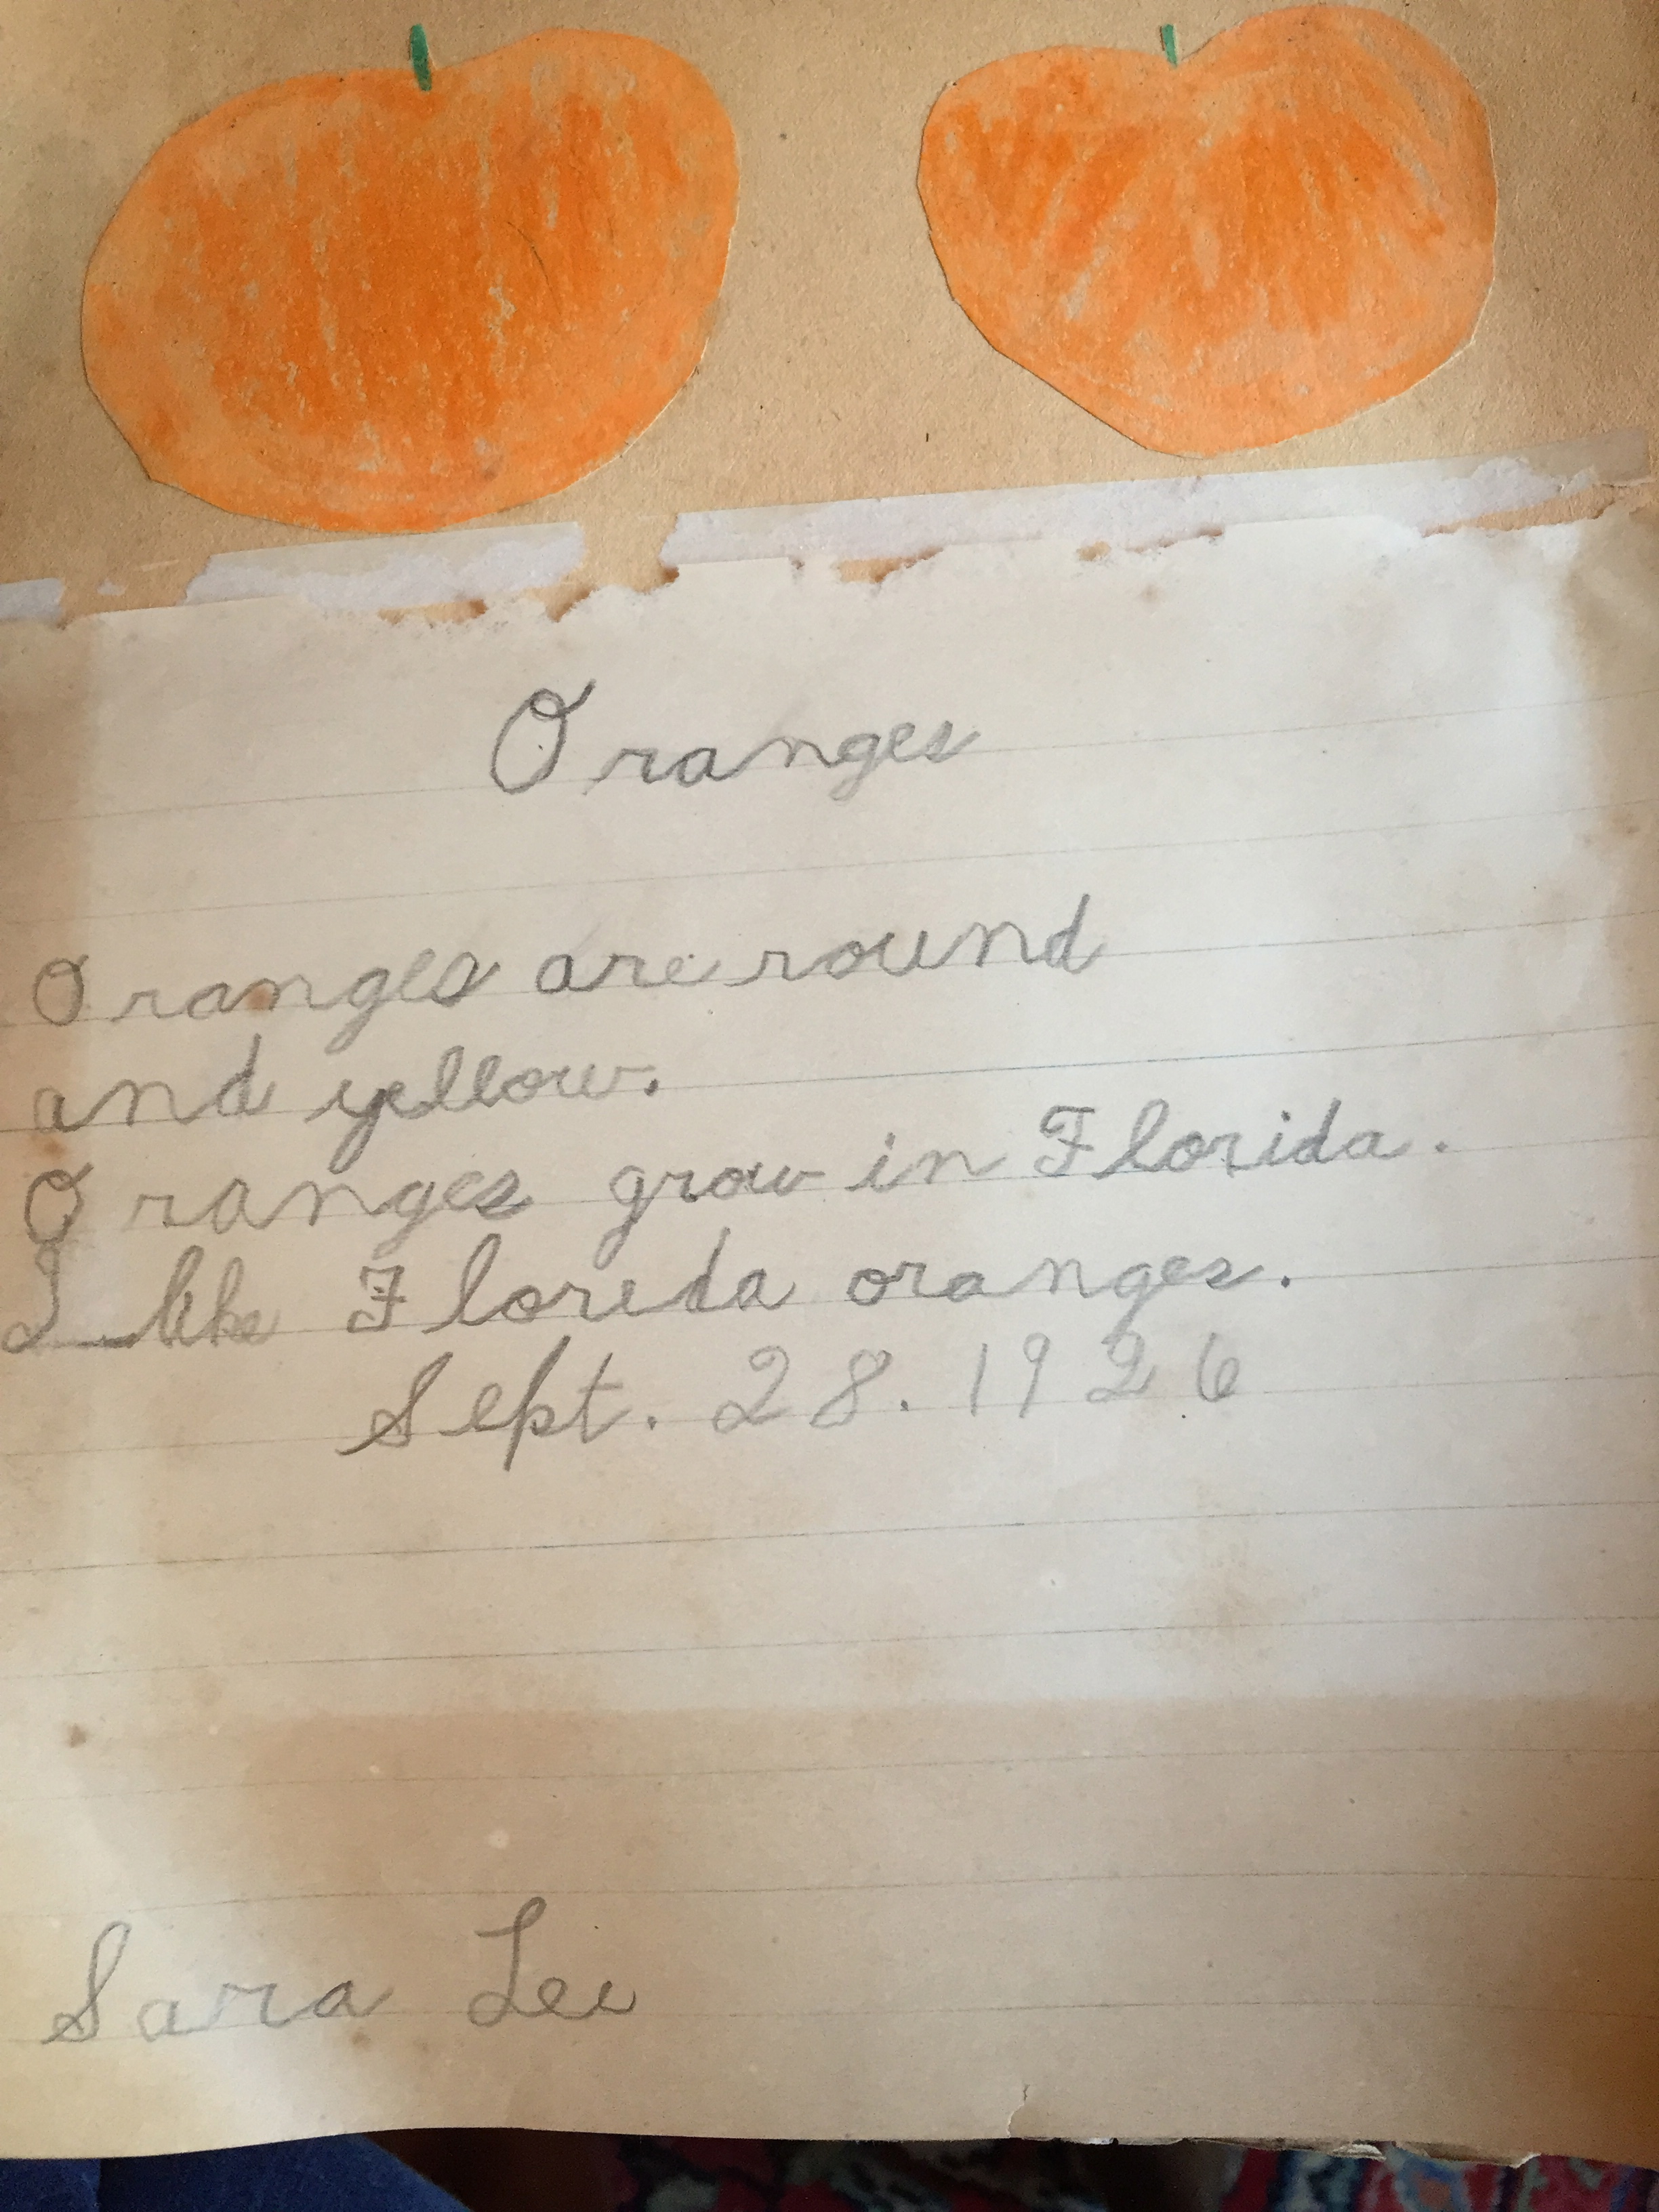 Oranges
Oranges are round
and yellow.
Oranges grow in Florida.
I like Florida oranges.
Sept. 28. 1926
Sara Lee